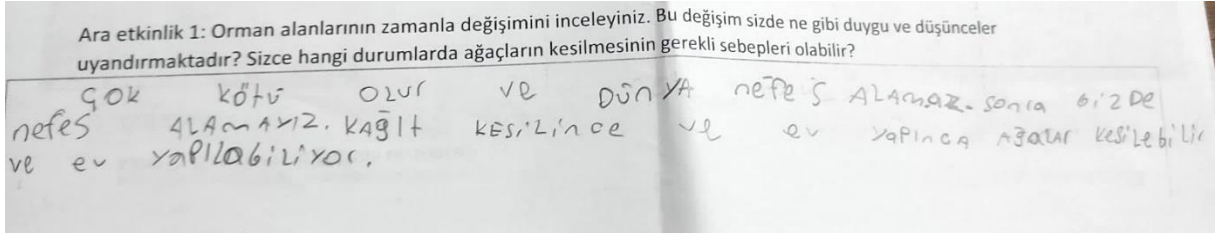 Ara etkinlik 1: Orman alanlarının zamanla değişimini inceleyiniz. Bu değişim sizde ne gibi duygu ve düşünceler
uyandırmaktadır? Sizce hangi durumlarda ağaçların kesilmesinin gerekli sebepleri olabilir?
ÇOK KÖTÜ OLUr ve DÜNYA nefes ALAmAZ. Sonra bizDe
nefes ALAmAYIZ. KAĞIt KESiLince ve ev YAPInCA AğaLAr KesiLebiLir
ve ev YAPILAbiLiYor.